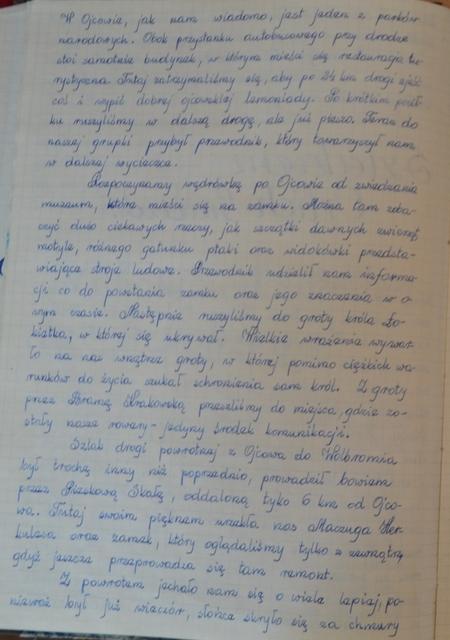 W Ojcowie, jak nam wiadomo, jest jeden z parków
narodowych. Obok przystanku autobusowego przy drodze
stoi samotnie budynek, w którym mieści się restauracja tu-
rystyczna. Tutaj zatrzymaliśmy się, aby po 24 km drogi zjeść
coś i wypić dobrej ojcowskiej lemoniady. Po krótkim posił-
ku ruszyliśmy w dalszą drogę, ale już pieszo. Teraz do
naszej grupki przybył przewodnik, który towarzyszył nam
w dalszej wycieczce.
Rozpoczynamy wędrówkę po Ojcowie od zwiedzania
muzeum, które mieści się na zamku. Można tam zoba-
czyć dużo ciekawych rzeczy, jak szczątki dawnych zwierząt,
motyle, różnego gatunku ptaki oraz widokówki przedsta-
wiające stroje ludowe. Przewodnik udzielił nam informa-
cji co do powstania zamku oraz jego znaczenia w o-
wym czasie. Następnie ruszyliśmy do groty króla Ło-
kietka, w której się ukrywał. Wielkie wrażenie wywar-
ło na nas wnętrze groty, w której pomimo ciężkich wa-
runków do życia szukał schronienia sam król. Z groty
przez Bramę Krakowską przeszliśmy do miejsca, gdzie zo-
stały nasze rowery - jedyny środek komunikacji.
Szlak drogi powrotnej z Ojcowa do Wolbromia
był trochę inny niż poprzednio, prowadził bowiem
przez Pieskową Skałę, oddaloną tylko 6 km od Ojco-
wa. Tutaj swoim pięknem urzekła nas Maczuga Her-
kulesa oraz zamek, który oglądaliśmy tylko z zewnątrz,
gdyż jeszcze przeprowadza się tam remont.
Z powrotem jechało nam się o wiele lepiej, po-
nieważ był już wieczór, słońce skryło się za chmury